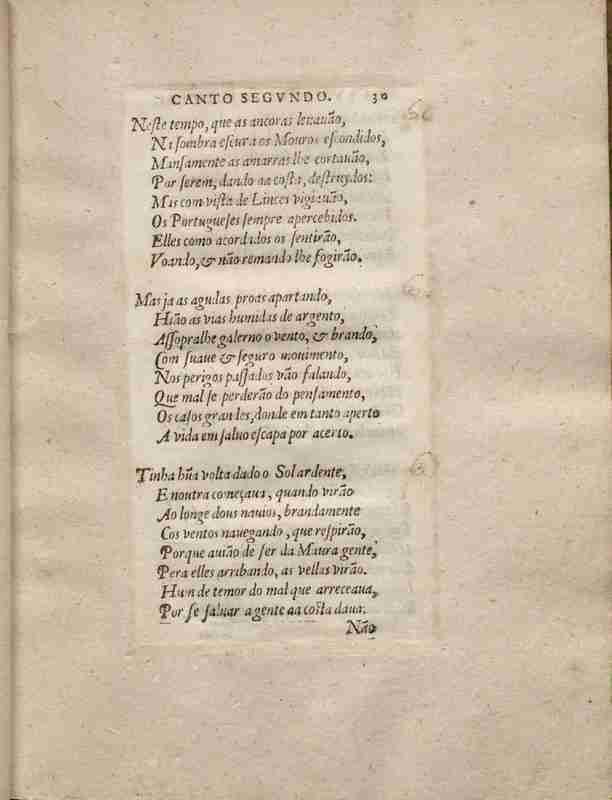 CANTO SEGVNDO. 30
Neste tempo, que as ancoras leuauão,
Na sombra escura os Mouros escondidos,
Mansamente as amarras lhe cortauão,
Por serem, dando aa costa, destruydos:
Mas com vista de Linces vigiauão,
Os Portugueses sempre apercebidos.
Elles como acordados os sentirão,
Voando, & não remando lhe fogirão.
Mas ja as agudas proas apartando,
Hião as vias humidas de argento,
Assopralhe galerno o vento, & brando,
Com suaue & seguro mouimento,
Nos perigos passados vão falando,
Que mal se perderão do pensamento,
Os casos grandes, donde em tanto aperto
A vida em saluo escapa por acerto.
Tinha hũa volta dado o Sol ardente,
E noutra começaua, quando virão
Ao longe dous nauios, brandamente
Cos ventos nauegando, que respirão,
Porque auião de ser da Maura gente,
Pera elles arribando, as vellas virão.
Hum de temor do mal que arreceaua,
Por se saluar a gente aa costa daua.
Não